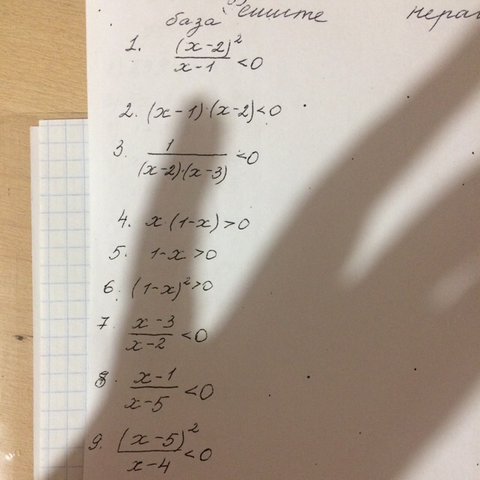 база Решите нерав
1. (x-2)²/(x-1) <0
2. (x-1)·(x-2)<0
3. 1/((x-2)·(x-3)) <0
4. x·(1-x)>0
5. 1-x>0
6. (1-x)²>0
7 (x-3)/(x-2) <0
8 (x-1)/(x-5) <0
9. (x-5)²/(x-4) <0